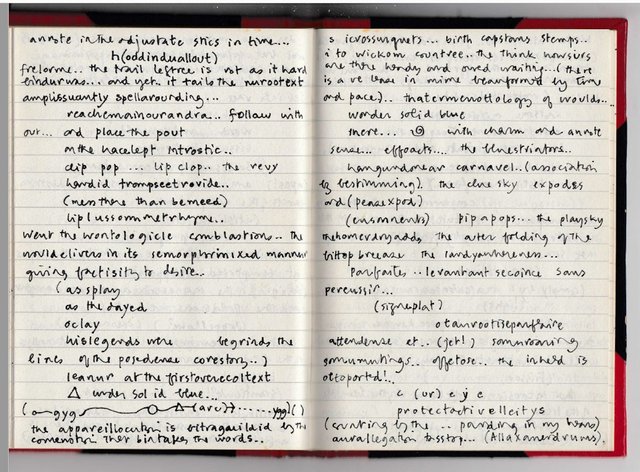 annote in the adjustate stics in time...
h(oddinduallout)
frelorme.. the trail leftree is not as it hard
eindurwas... and yet.. it tails the nurootext
amplissuantly spellarounding...
reachemainourandra... follaw with
out... and place the pout
on the hacelept introstic..
clip pop ... lip clop.. the revy
handid trompseetrovide..
(ness there than bemeed)
liplussommetrhyme..
went the wontologicle comblastions.. the
would elivers in its semorphrimixed mannur
giving factisity to desire..
(as splay
as the dayed
oclay
hislegends were begrinds the
lines of the posedense corestory..)
leanur at the firstoverecoltext
Δ under solid blue...
(a~gyg ○ Δ(arc)) ..... ygg)()
the appareillocution is bitraguilaid by the
comenotion Ther bintakes the words..
s icrossurquets... birth capstans stemps..
i to wickom countree.. the Think howsurs
are there handy and owed waiting.. (there
is a ve lense in mime beaunformed by time
and pace).. thatermenotlology of woulds...
wonder solid blue
snere... with charm and annote
sense... effoacts.... the bluestriators..
hangundmear carnavel.. (association
by bestimming). the clue sky expodses
and (peacexpod)
(ensmnents) pipapops... the playsky
thehomerdryadds the arter folding of the
hilltop breease the landyouhereness...
parfaites .. levantant secoince sans
percussir...
(signeplat)
otaurootisepanfaire
attendense et.. (jet!) somuroaring
gomurmutings.. offetose.. the inherd is
ottoported!..
c (ur) e j e
protectactivelleitys
(courating by the ... parading in my hums)
aurallegation bisstop... (Allaxanerdruns).